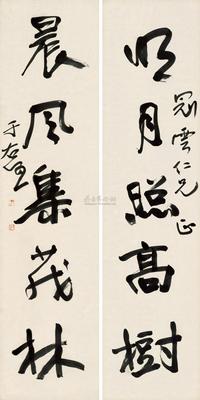 明月照高樹
冠雲仁兄正
晨風集茂林
于右任